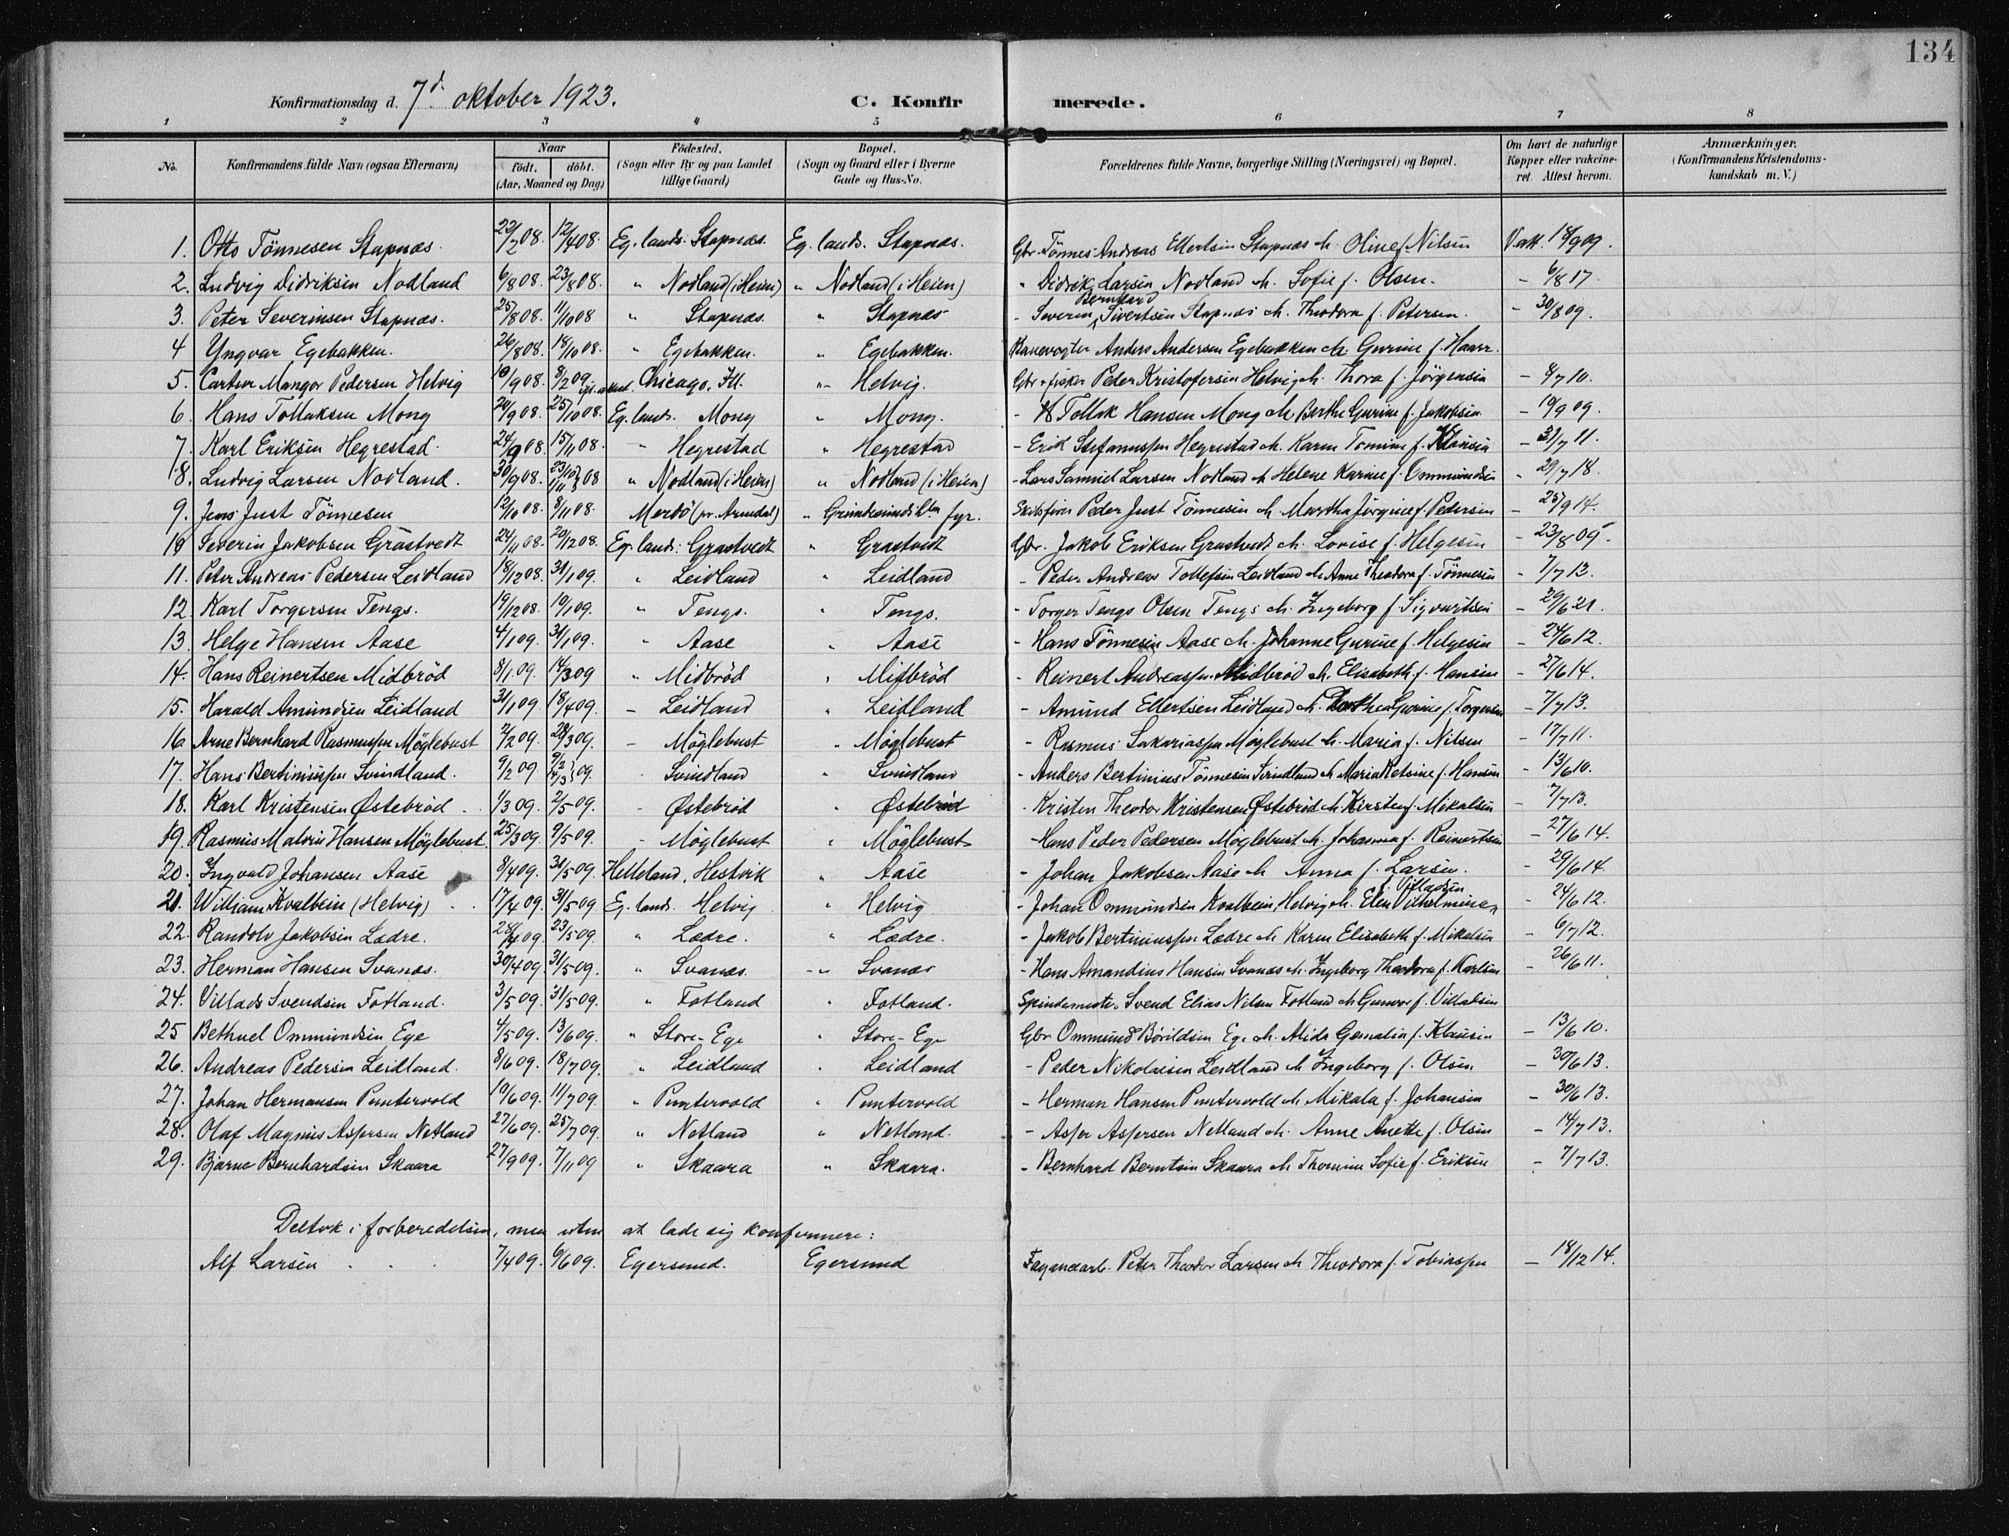 134
Konfirmationsdag d. 7d oktober 1923. C. Konfirmerede.
1 2 3 4 5 6 7 8
No. Konfirmandens fulde Navn (ogsaa Efternavn) Naar født. døbt. (Aar, Maaned og Dag) Fødested. (Sogn eller By og paa Landet tillige Gaard) Bopæl. (Sogn og Gaard eller i Byerne Gade og Hus-No. Forældrenes fulde Navne, borgerlige Stilling (Næringsvei) og Bopæl. Om havt de naturlige Kopper eller vakcineret. Attest herom. Anmærkninger. (Konfirmandens Kristendomskundskab m. V.)
1. Otto Tønnesen Stapnæs. 22/2 08. 12/4 08. Eg. lands. Stapnæs. Eg. lands. Stapnæs. Gbr. Tønnes Andreas Ellertsen Stapnæs & Oline f. Nilsen Vakc. 18/9 09.
2. Ludvig Didriksen Nodland 6/8 08. 23/8 08. " Nodland (i Heien) " Nodland (i Heien) - Didrik Larsen Nodland & Sofie f. Olsen. - 6/8 17.
3. Peter Severinsen Stapnæs. 25/8 08. 11/10 08 " Stapnæs. " Stapnæs - Severin Bernhard Sivertsen Stapnæs & Theodora f. Petersen. - 30/8 09.
4 Yngvar Egebakken. 26/8 08. 18/10 08. " Egebakken. " Egebakken. Banevogter Anders Andersen Egebakken & Gurine f. Haarr.
5. Carter Mangor Pedersen Helvig 10/9 08. 8/2 09 Chicago, Ill. " Helvig. Gbr. + fisker Peder Kristofersen Helvig & Thora f. Jørgensen - 8/7 10.
6. Hans Tollaksen Mong 20/9 08. 25/10 08. Eg. lands. Mong " Mong. - Tollak Hansen Mong & Berthe Gurine f. Jakobsen - 19/9 09.
7. Karl Eriksen Hegrestad. 24/9 08. 15/11 08. - Hegrestad " Hegrestad - Erik Stefanussen Hegrestad & Karen Tomine f. Klausen - 31/7 11.
8. Ludvig Larsen Nodland. 30/9 08. 23/10 1/11 08 " Nodland (i Heien) " Nodland (i Heien) - Lars Samuel Larsen Nodland & Helene Karine f. Ommundsen - 29/7 18.
9. Jens Just Tønnesen 12/10 08. 8/11 08. Merdø (pr. Arendal) " fyr. Peder Just Tønnesen & Martha Jørgine f. Pedersen - 25/9 14.
10 Severin Jakobsen Gråstvedt 24/11 08. 20/12 08. Eg. lands. Grastvedt " Grastvedt Gbr. Jakob Eriksen Grastvedt & Lovise f. Helgesen - 23/8 09.
11. Peter Andreas Pedersen Leidland 18/12 08. 31/1 09. " Leidland " Leidland - Peder Andreas Tollefsen Leidland & Anne Theodora f. Tønnesen - 7/7 13.
12. Karl Torgersen Tengs. 19/12 08. 10/1 09. " Tengs. " Tengs. - Torger Tengs Olsen Tengs & Ingeborg f. Sigvartsen - 29/6 21.
13. Helge Hansen Aase 4/1 09. 31/1 09. " Aase " Aase - Hans Tønnesen Aase & Johanne Gurine f. Helgesen - 24/6 12.
14. Hans Reinertsen Midbrød 8/1 09. 14/3 09 " Midbrød " Mitbrød - Reinert Andreassen Midbrød & Elisabeth f. Hansen - 27/6 14.
15. Harald Amundsen Leidland 31/1 09. 18/4 09. - Leidland " Leidland - Amund Ellertsen Leidland & Dorthea Gurine f. Torgersen - 7/7 13.
16 Arne Bernhard Rasmussen Møglebust 2/2 09. 28/3 09. - Møglebust " Møglebust - Rasmus Sakariassen Møglebust & Maria f. Nilsen - 17/7 11.
17. Hans Bertiniussen Svindland. 9/2 09 9/2 14/3 09. - Svindland " Svindland - Anders Bertinius Tønnesen Svindland & Maria Retsine f. Hansen - 13/6 10.
18. Karl Kristensen Østebrød 1/3 09. 2/5 09. - Østebrød " Østebrød - Kristen Theodor Kristensen Østebrød & Kirsten f. Mikalsen - 7/7 13.
19. Rasmus Malvin Hansen Møglebust. 25/3 09. 9/5 09. - Møglebust " Møglebust - Hans Peder Pedersen Møglebust & Johanna f. Reinertsen - 27/6 14.
20. Ingvald Johansen Aase 8/4 09. 31/5 09. Helleland, Hestvik " Aase - Johan Jakobsen Aase & Anna f. Larsen. - 29/6 14.
21. William Kvalbein (Helvig) 17/4 09. 31/5 09. Eg. lands. Helvig " Helvig - Johan Ommundsen Kvalbein, Helvig & Elen Vilhelmine f. Villadsen - 24/6 12.
22. Randolv Jakobsen Lædre. 28/4 09. 23/5 09. " Lædre. " Lædre. - Jakob Bertiniussen Lædre & Karen Elisabeth f. Mikalsen - 6/7 12.
23. Herman Hansen Svanæs. 30/4 09. 31/5 09. " Svanæs. " Svanæs - Hans Amandius Hansen Svanæs & Ingeborg Theodora f. Karlsen - 26/6 11.
24. Villads Svendsen Fotland. 3/5 09. 31/5 09. " Fotland " Fotland. Spindemester Svend Elias Nilsen Fotland & Gunvor f. Villadsen
25 Bethuel Ommundsen Ege 4/5 09. 13/6 09. " Store-Ege " Store-Ege Gbr. Ommund Bøvildsen Ege & Alida Gemalia f. Klausen - 13/6 10.
26. Andreas Pedersen Leidland. 8/6 09. 18/7 09. " Leidland . Leidland - Peder Nikolaisen Leidland & Ingeborg f. Olsen - 30/6 13.
27. Johan Hermansen Puntervold 10/6 09. 11/7 09. " Puntervold " Puntervold - Herman Hansen Puntervold & Mikala f. Johansen - 30/6 13.
28. Olaf Magnus Aspersen Netland 27/6 09. 25/7 09. " Netland " Netland. - Asper Aspersen Netland & Anne Anette f. Olsen - 14/7 13.
29. Bjarne Bernhardsen Skaara 27/9 09. 7/11 09 " Skaara " Skaara. - Bernhard Berntsen Skaara & Thomine Sofie f. Eriksen - 7/7 13.
Deltok i forberedelsen, men uten at lade sig konfirmere:
Alf Larsen 7/4 09. 6/6 09. Egersund. Egersund Fayancearb. Peter Theodor Larsen & Theodora f. Tobiassen - 18/12 14.